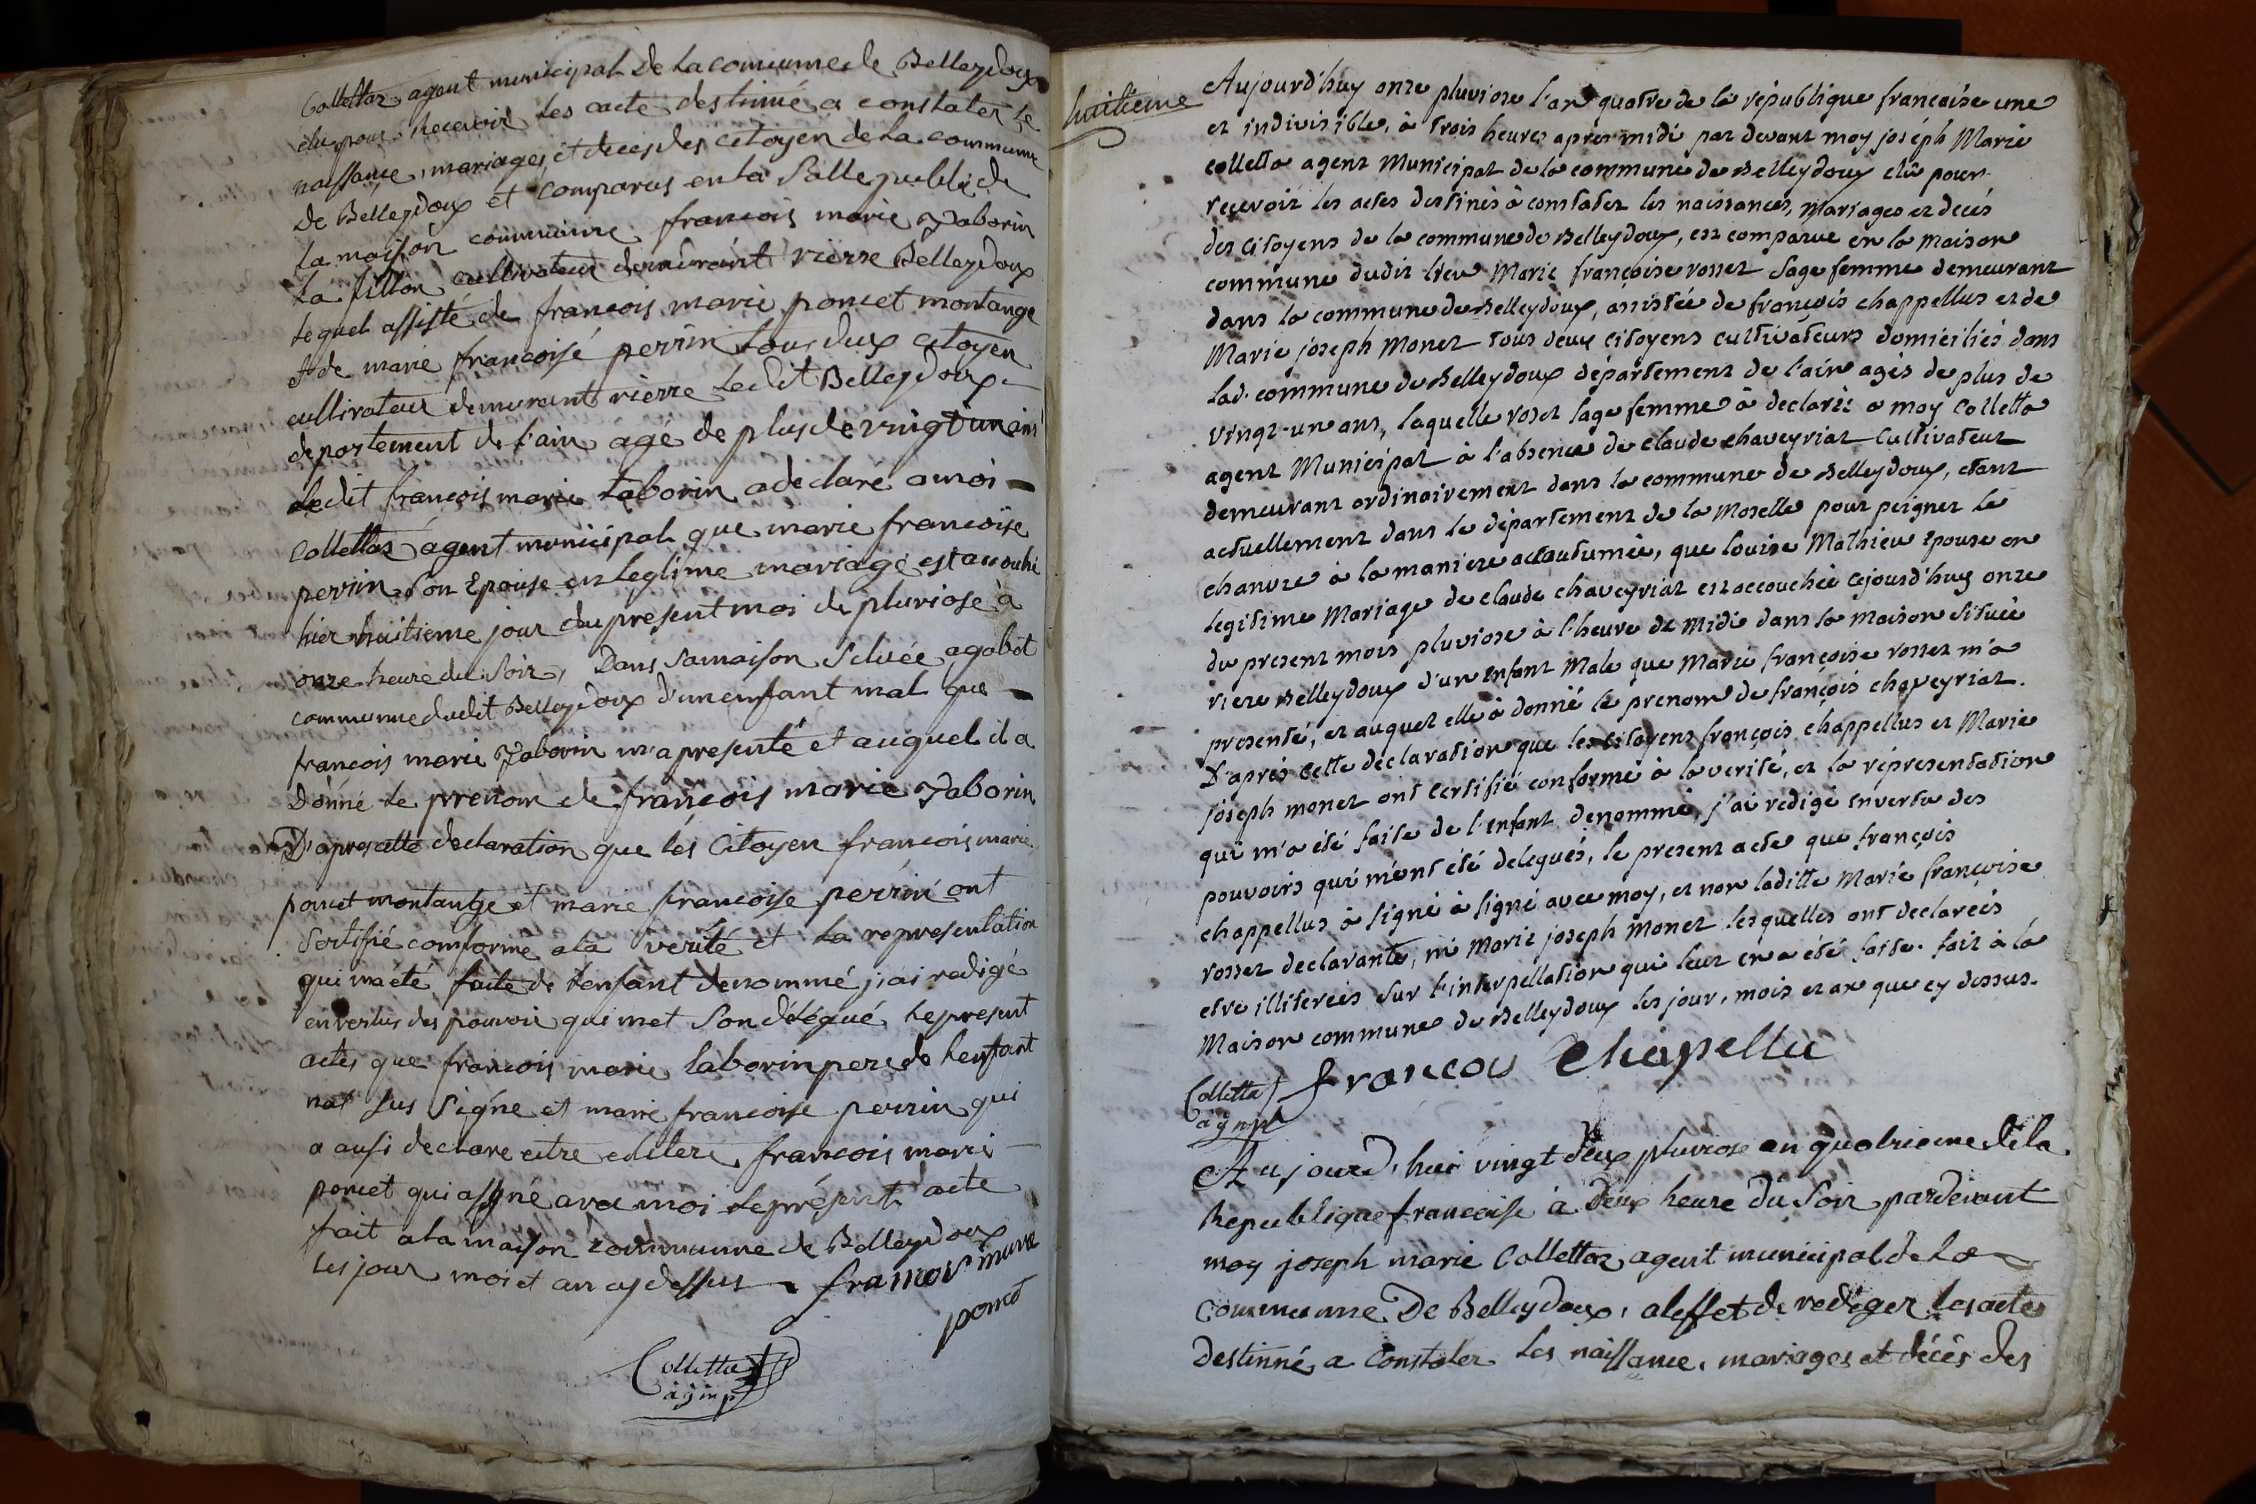 Collettaz agent municipal De La commune de Belleydoux
elu pour Recevoir les acte destinné a constater le
naissance, mariages et deces des citoyen de La commune
De Belleydoux et comparus en la Salle publi de
La maison commune francois marie Taborin
La fillon cultivateur demeurant rierre Belleydoux
lequel assisté de francois marie poncet montange
et de marie francoise perrin tous deux citoyen
cultivateur demeurant rierre Ledit Belleydoux
departement de l'ain agé de plus de vingt un ans
Ledit francois marie Taborin a déclaré a moi
Collettaz agent municipal que marie francoise
perrin son Epouse en leglime mariage est accouhé
hier huitieme jour du present moi de pluviose à
onze heure du Soir, Dans sa maison Situéé a gobet
commune dudit Belleydoux d'un enfant mal que
francois marie Taborin m'a presenté et auquel il a
Donné le prenom de françois marie Taborin
D'apres cette declaration que les Citoyen francois marie
poncet montange et marie francoise perrin ont
Sertifié comforme a la verité et la representation
qui ma eté faite de lenfant denommé j'ai redigé
en vertus des pouvoir qui met son délégué le present
actes que francois marie laborin pere de lenfant
nat sus Signe et marie francoise perrin qui
a ausi declare entre francois marie
poncet qui a signé avec moi le présent acte
fait a la maison commune de Belleydoux
les jour moi et an cy dessus francois marie
poncet
Colletta
agmp
huitieme
Aujourd'huy onze pluviose l'an quatre de la république françoise une
et indivisible, à trois heures après midi par devant moy joséph Marie
colletta agent Municipal de la commune de Belleydoux élû pour
reçevoir les actes destinés à constater les naissances, mariages et decés
des citoyens de la commune de Belleydoux, est comparue en la maison
commune dudit lieu Marie françoise rosset Sage femme demeurant
dans la commune de Belleydoux, assistée de françois chappellus et de
Marie joseph Monet tous deux citoyens cultivateurs domiciliés dans
lad. commune de Belleydoux département de l'ain agés de plus de
vingt-un ans, laquelle roset sage femme à declaré a moy Colletta
agent Municipal à l'absence de claude chaveyriat Cultivateur
demeurant ordinairement dans la commune de Belleydoux, étant
actuellement dans le département de la Moselle pour peigner le
chanvre à la maniere accoutumée, que louise Mathieu Epouse en
legitime Mariage de claude chaveyriat est accouchée cejourd'huy onze
du present mois pluviose à l'heure de Midi dans la maison située
riere Belleydoux d'un Enfant Male que Marie françoise rosset m'a
presenté, et auquel elle à donné le prenom de françois chaveyriat.
D'après cette déclaration que les citoyens françois chappellus et Marie
joseph monet ont certifié conforme à la verité, et la répresentation
qui m'a été faite de l'enfant denommé, j'ai redigé en vertu des
pouvoirs qui m'ent été delegués, le present acte que françois
chappellus à signé à signé avec moy, et non laditte Marie françoise
rosset declarante, ni Marie joseph Monet lesquelles ont declarées
etre illiterées sur l'interpellation qui leur en a été faite. fait à la
Maison commune de Belleydoux les jour, mois et an que cy dessus.
Colletta francou Chapellu
agmp
Aujourd'hui vingt deux pluviose an quatrieme de la
Republique francaise à deux heure du Soir pardevant
moy joseph marie Collettaz agent municipal de La
commune De Belleydoux, a leffet de rediger les actes
Destinné a Constater Les naissance, mariages et décès des